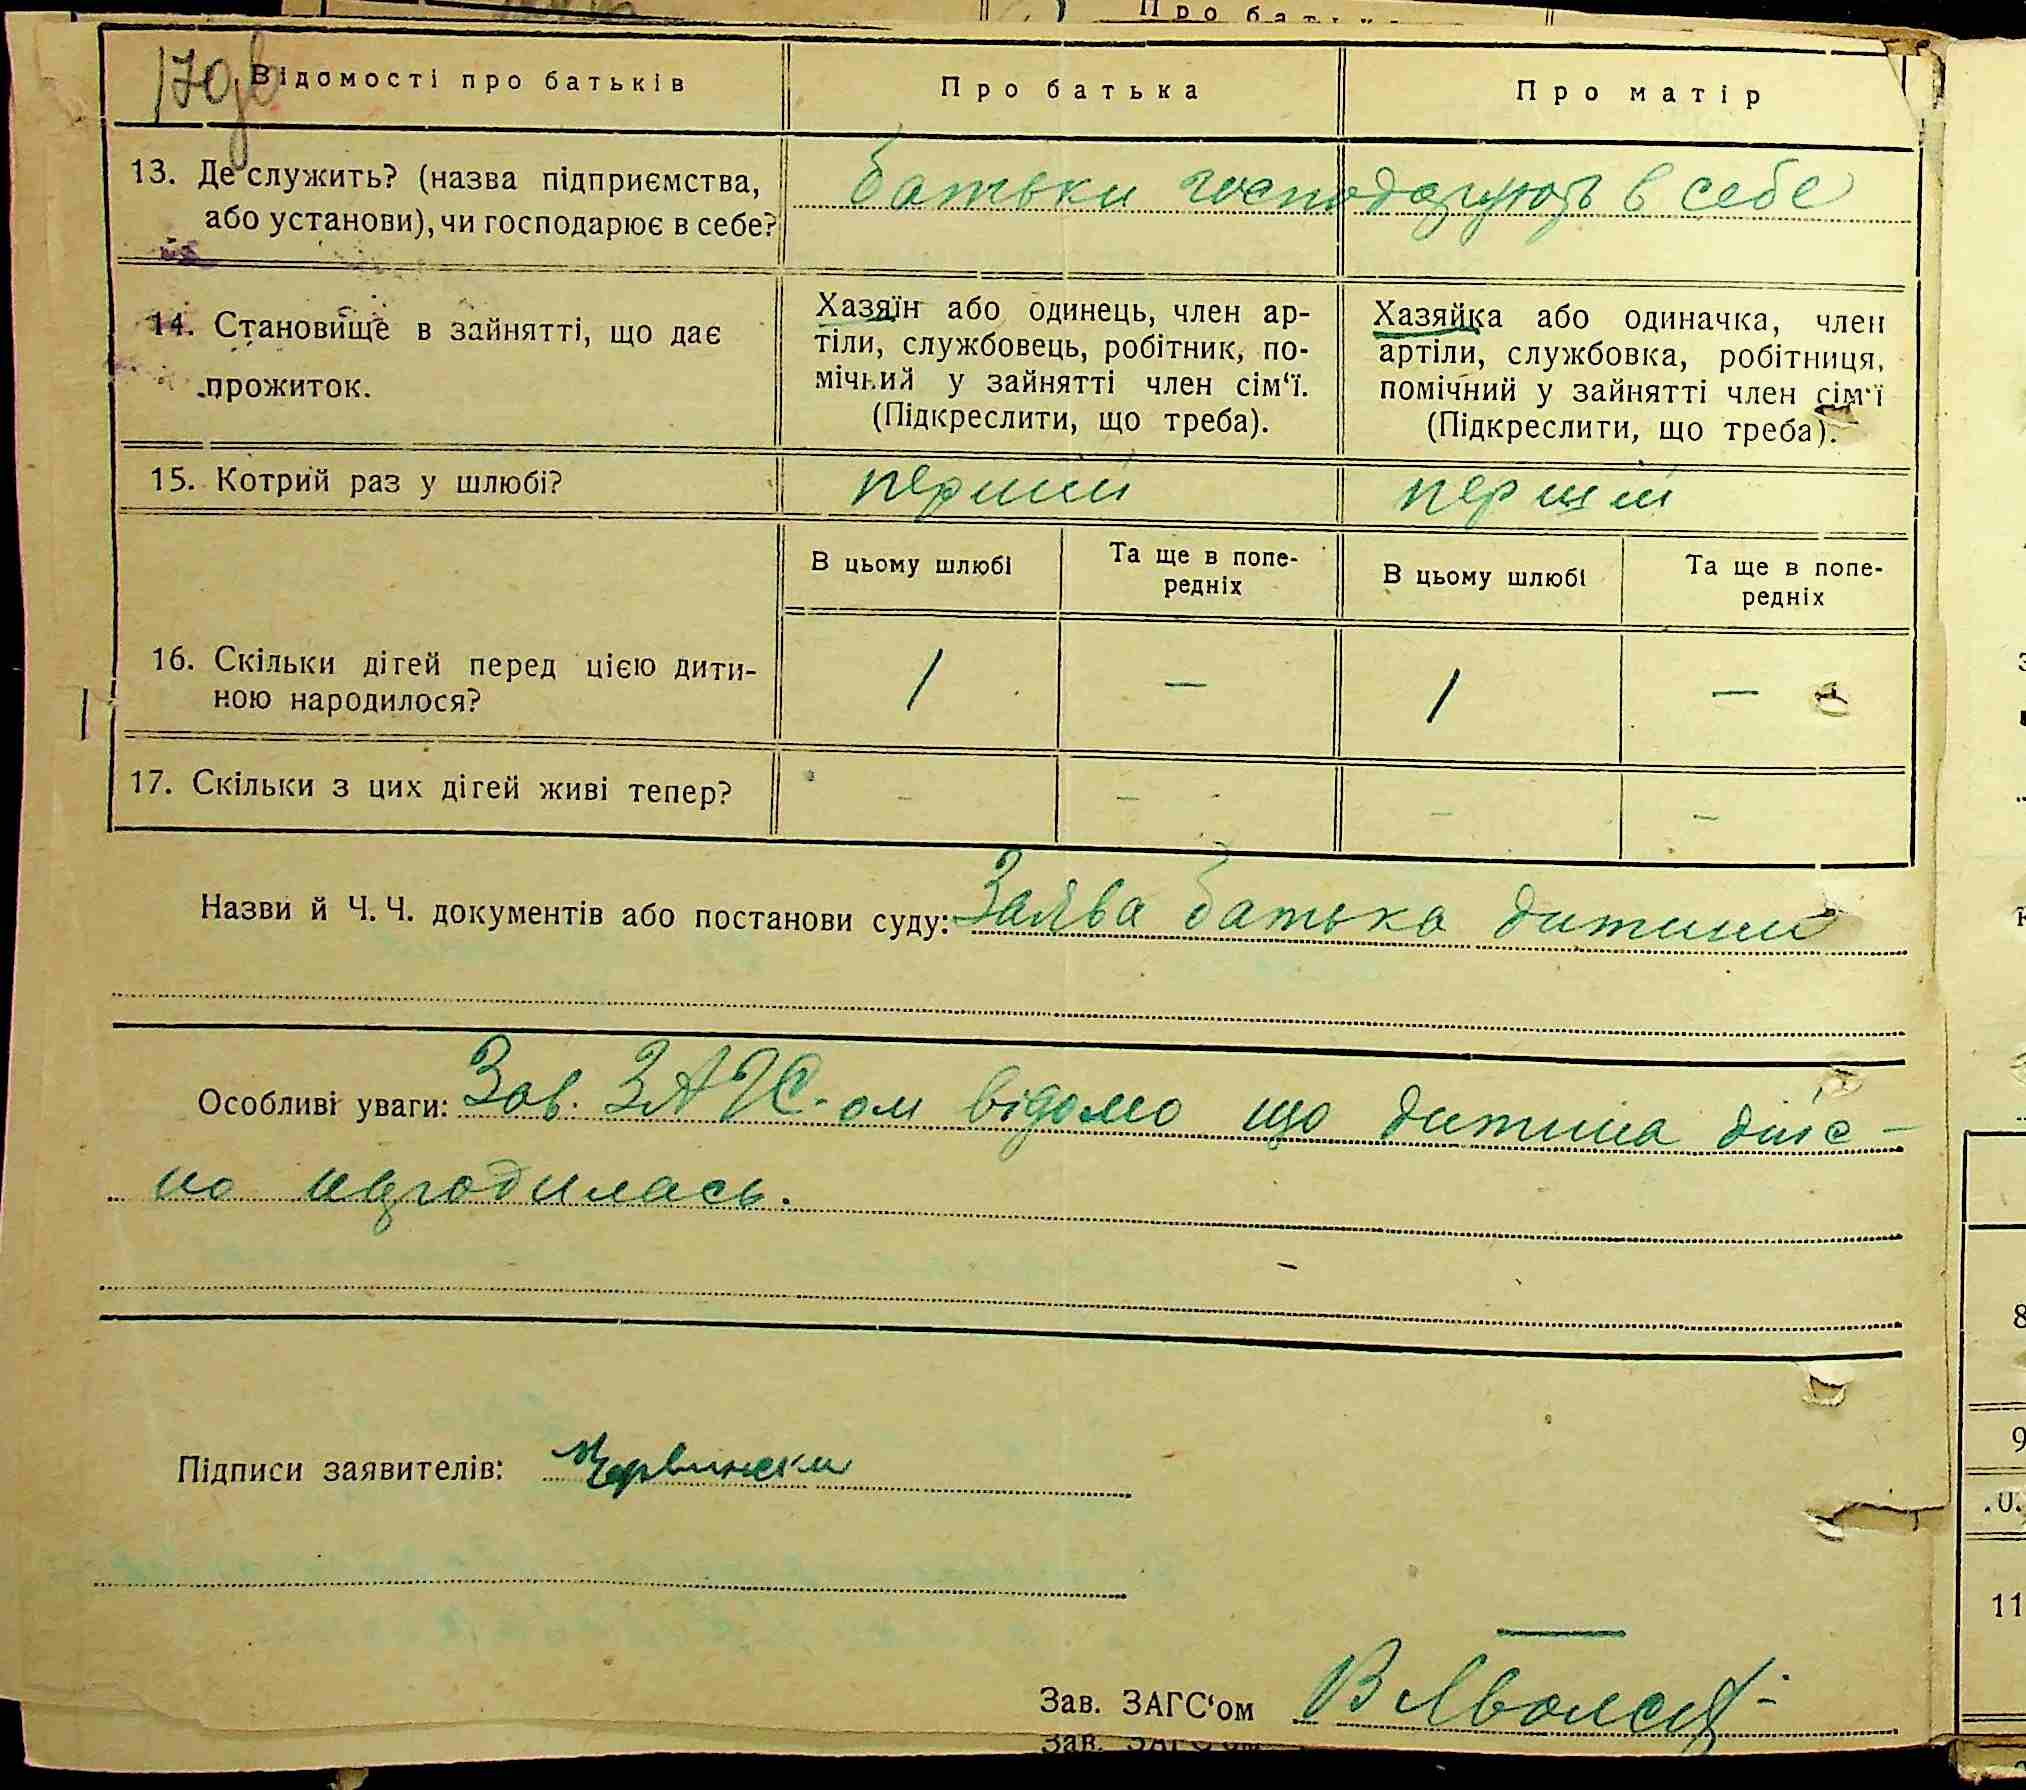 Про батька
170
Відомості про батьків
Про батька
Про матір
13. Де служить? (назва підприємства,
або установи), чи господарює в себе?
батьки господарують в себе
14. Становище в зайнятті, що дає
прожиток.
Хазяїн або одинець, член ар-
тіли, службовець, робітник, по-
мічний у зайнятті член сім‘ї.
(Підкреслити, що треба).
Хазяйка або одиначка, член
артіли, службовка, робітниця,
помічний у зайнятті член сім‘ї
(Підкреслити, що треба).
15. Котрий раз у шлюбі?
перший
перший
В цьому шлюбі
Та ще в попе-
редніх
В цьому шлюбі
Та ще в попе-
редніх
16. Скільки дітей перед цією дити-
ною народилося?
1 — 1 —
17. Скільки з цих дітей живі тепер?
– – – –
Назви й Ч. Ч. документів або постанови суду: Заява батька дитини
Особливі уваги: Зав. ЗАГС-ом відомо що дитина дійс-
но народилась.
Підписи заявителів: Червински
Зав. ЗАГС‘ом
Зав. ЗАГС‘ом
8
9
11